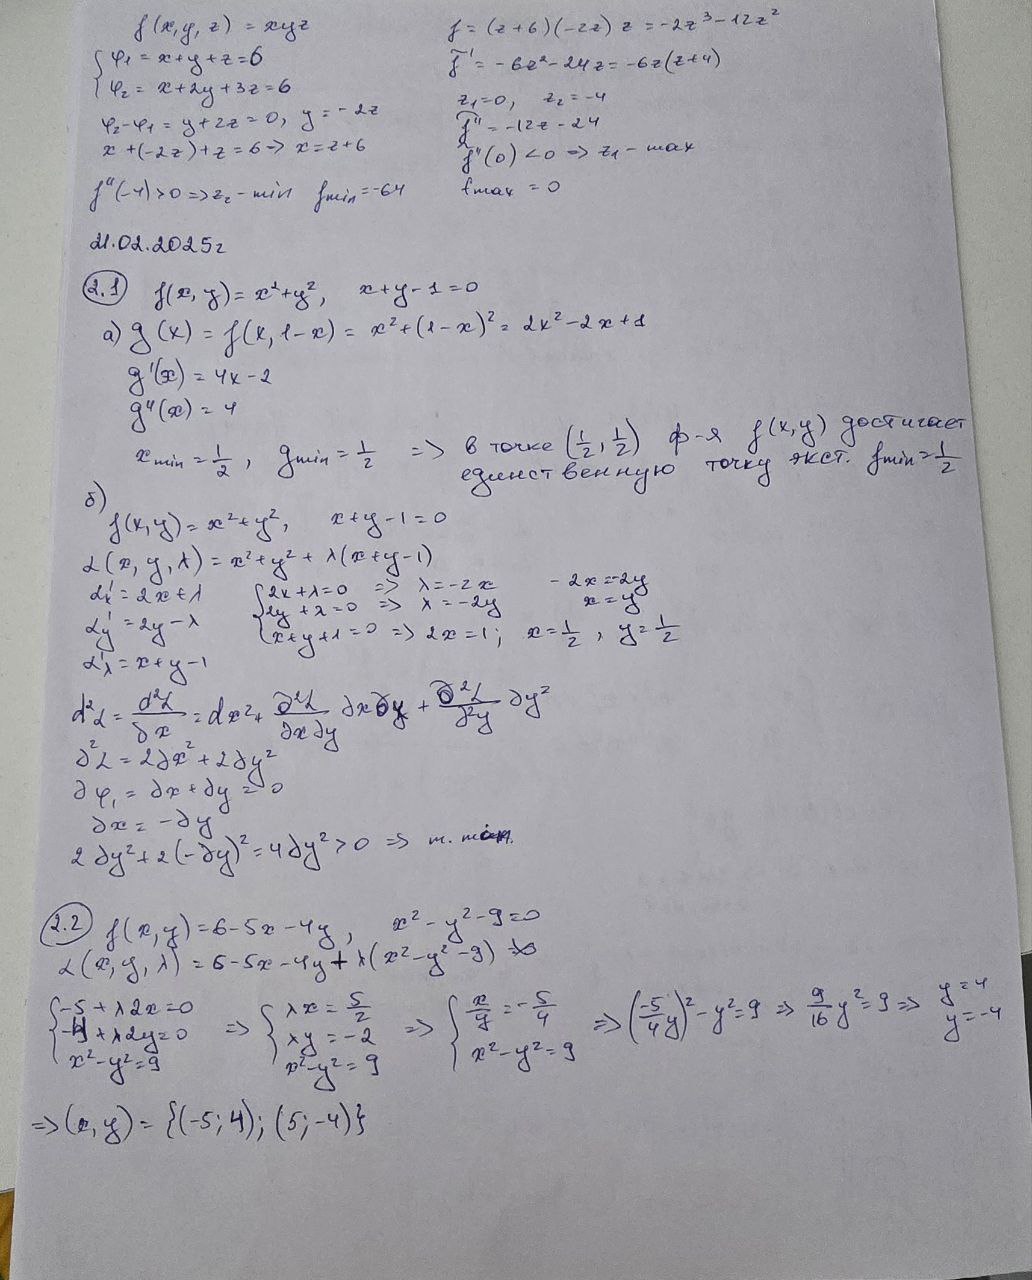 f(x,y,z) = xyz
{ φ₁ = x+y+z=6
φ₂ = x+2y+3z=6
φ₂-φ₁ = y+2z=0, y=-2z
x+(-2z)+z=6 => x=z+6
f''(-4)>0 => z₂ - min fmin=-64
f = (z+6)(-2z)z = -2z³-12z²
f' = -6z²-24z = -6z(z+4)
z₁=0, z₂=-4
f'' = -12z-24
f''(0)<0 => z₁ - max
fmax = 0
21.02.2025г
2.1 f(x,y)=x²+y², x+y-1=0
а) g(x) = f(x,1-x) = x²+(1-x)² = 2x²-2x+1
g'(x) = 4x-2
g''(x) = 4
xmin = 1/2, gmin = 1/2 => в точке (1/2, 1/2) ф-я f(x,y) достигает
единственную точку экст. fmin = 1/2
б)
f(x,y)=x²+y², x+y-1=0
L(x,y,λ)=x²+y²+λ(x+y-1)
L'x=2x+λ { 2x+λ=0 => λ=-2x -2x=-2y
L'y=2y-λ 2y+λ=0 => λ=-2y x=y
L'λ=x+y-1 x+y+1=0 => 2x=1; x=1/2, y=1/2
d²L = d²L/∂x = dx² + ∂²L/∂x∂y ∂x∂y + ∂²L/∂²y ∂y²
∂²L = 2∂x²+2∂y²
∂φ₁ = ∂x+∂y=0
∂x = -∂y
2∂y²+2(-∂y)²=4∂y²>0 => т. min.
2.2 f(x,y)=6-5x-4y, x²-y²-9=0
L(x,y,λ)=6-5x-4y+λ(x²-y²-9)
{ -5+λ2x=0 => { λx=5/2 => { x/y=-5/4 => (-5/4 y)²-y²=9 => 9/16 y²=9 => y=4
-4+λ2y=0 λy=-2 x²-y²=9 y=-4
x²-y²=9 x²-y²=9
=> (x,y) = {(-5;4); (5;-4)}